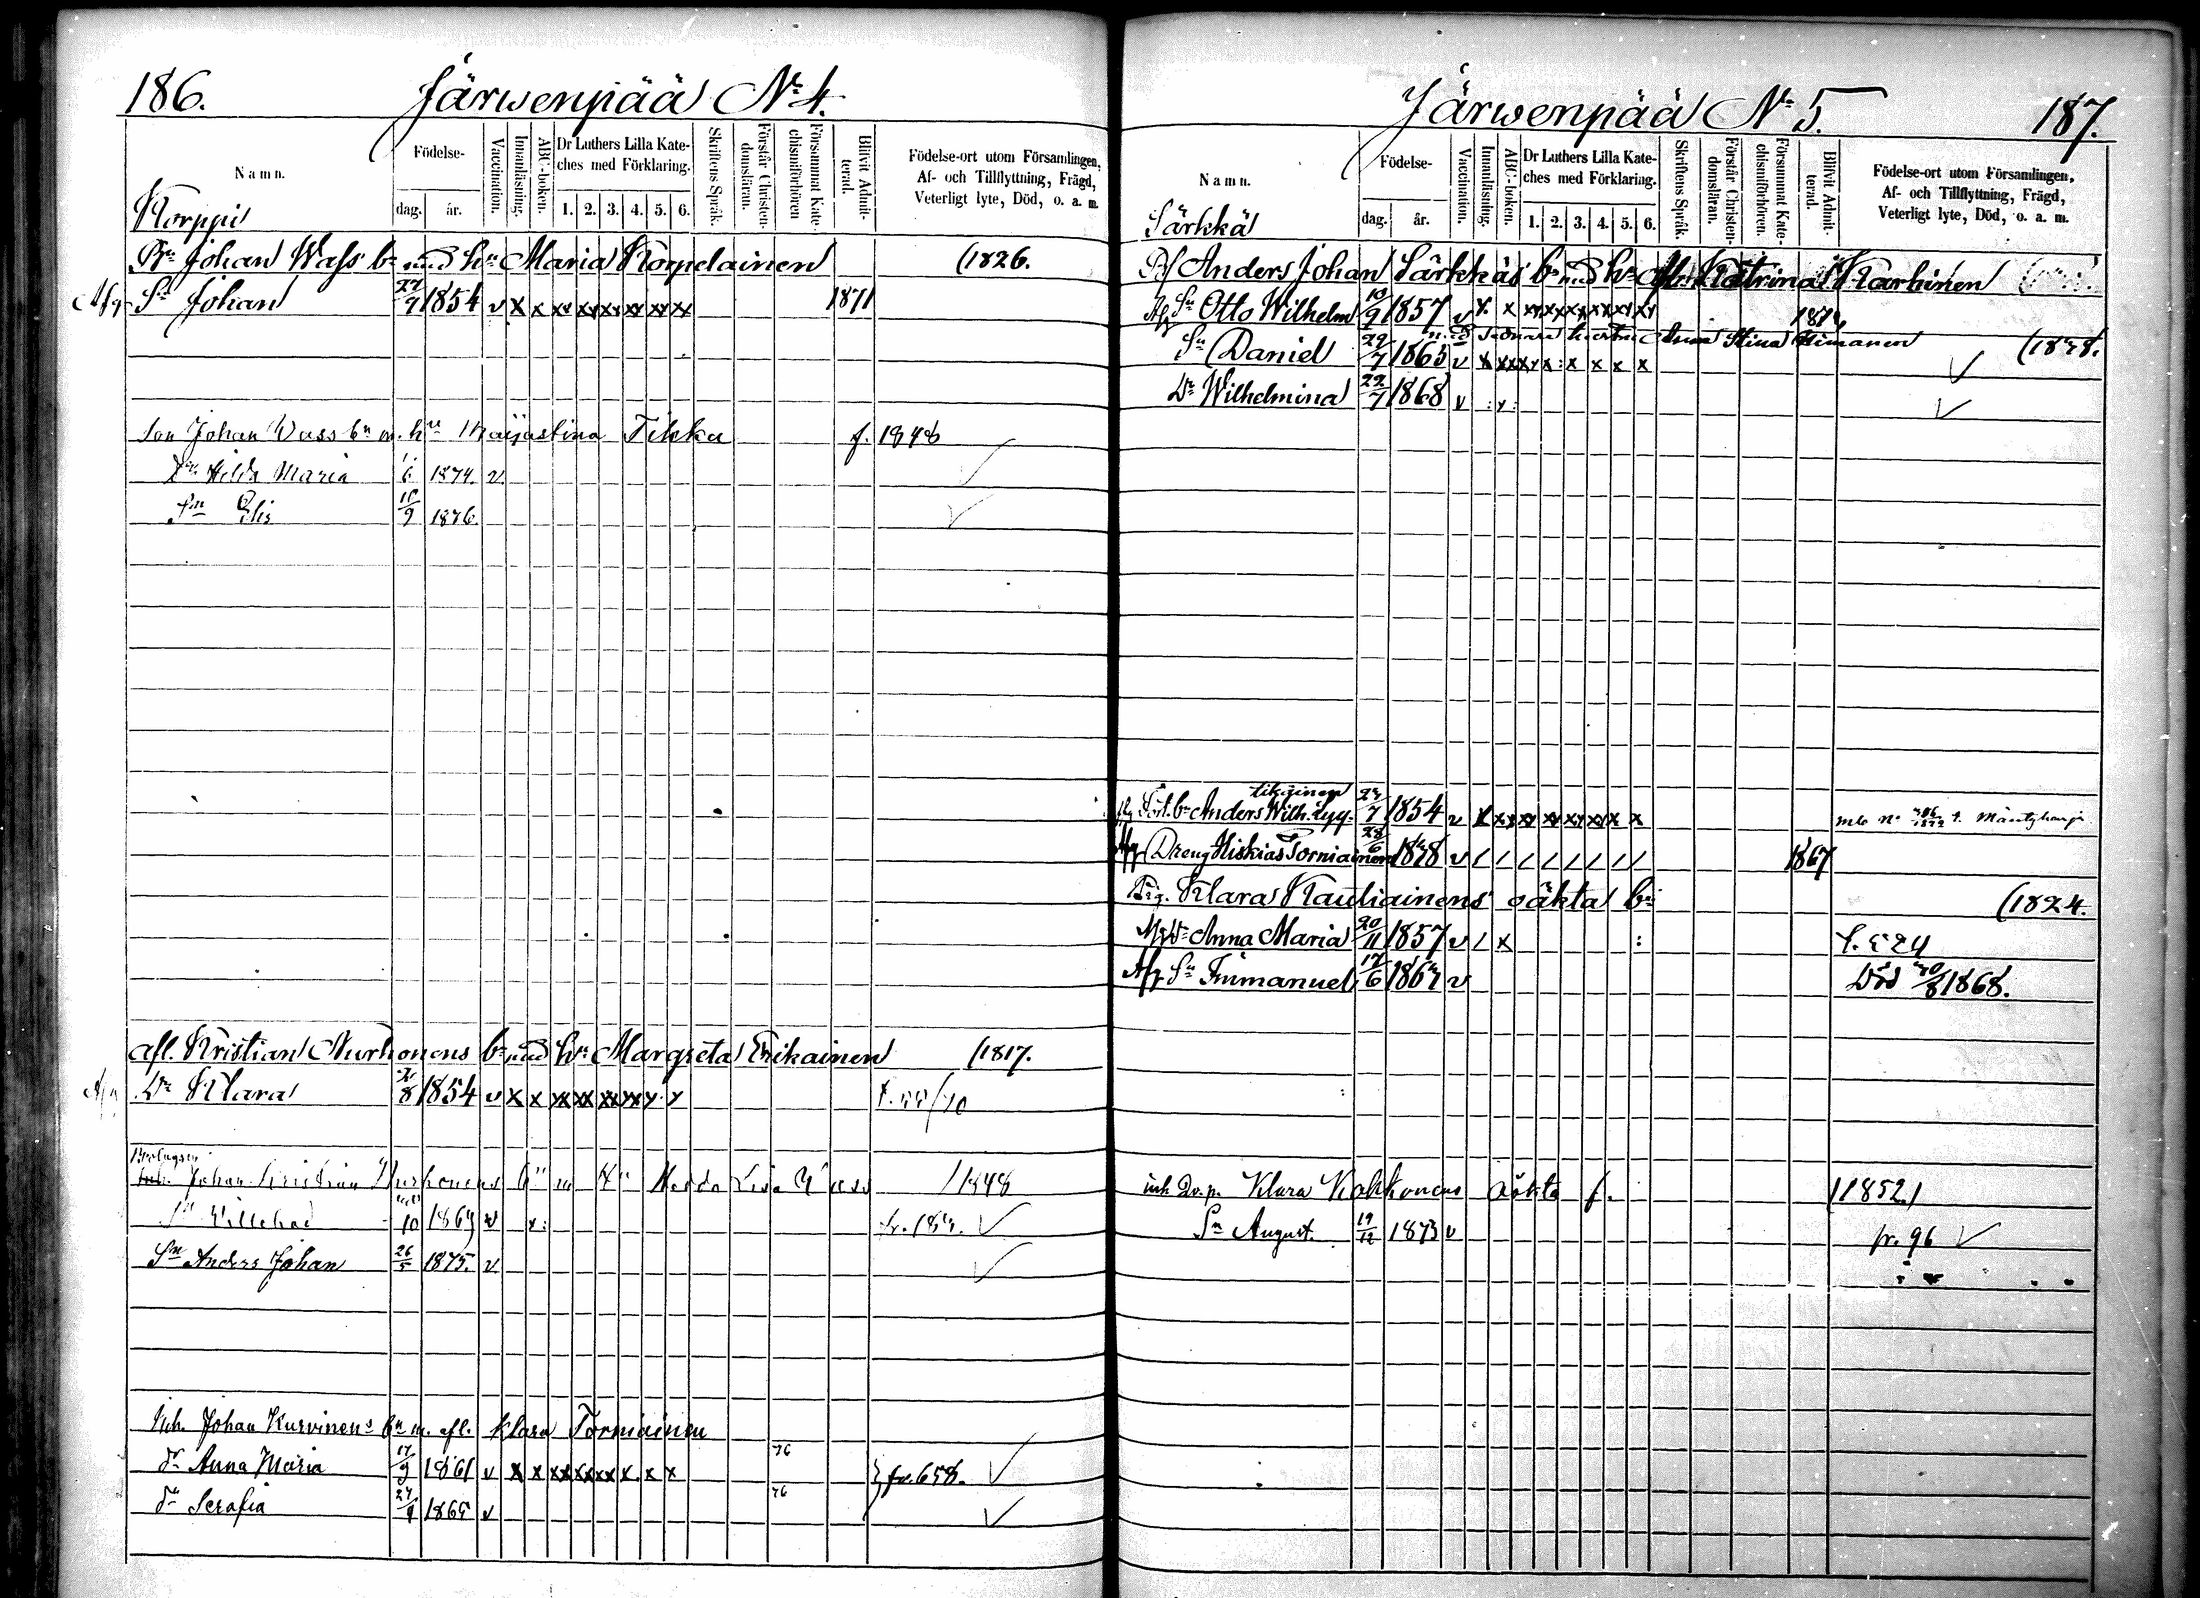 186.
Järwenpää No 4.
Namn.
Födelse-
dag.
år.
Vaccination.
Innanläsning.
ABC-boken.
Dr Luthers Lilla Kate-
ches med Förklaring.
1. 2. 3. 4. 5. 6.
Skriftens Språk.
Förstår Christen-
domsläran.
Försummat Kate-
chismiförhören
Blifvit Admit-
terad.
Födelse-ort utom Församlingen,
Af- och Tillflyttning, Frägd,
Veterligt lyte, Död, o. a. m.
Korppi
Johan Wass bn med hu Maria Korpelainen (1826.
Afg Sn Johan 27/9 1854 v x x xx xx xx xx xx xx 1871
Son Johan Wass bn m. hu Majastina Tikka f. 1848
Dr Hilda Maria 1874. v
Sn Elis 18/9 1876.
afl. Kristian Nurhonens bn med hu Margreta Erikainen (1817.
Dr Klara 1854 v x x xx xx xx xx x x
Johan Kristian Nurhonens bn m hu Hedda Lisa Wass 1848
Sn Villehad 10 1869 v x:
Sn Anders Johan 26/5 1875. v
Inh. Johan Kurvinens bn m. afl. Klara Torniainen
dr Anna Maria 17/9 1861 v x x xx xx xx x x x 76 } fr. 658.
dr Serafia 1865 v 76
Järwenpää No 5.
187.
Namn.
Födelse-
dag.
år.
Vaccination.
Innanläsning.
ABC-boken.
Dr Luthers Lilla Kate-
ches med Förklaring.
1. 2. 3. 4. 5. 6.
Skriftens Språk.
Förstår Christen-
domsläran.
Försummat Kate-
chismiförhören.
Blifvit Admit-
terad.
Födelse-ort utom Församlingen,
Af- och Tillflyttning, Frägd,
Veterligt lyte, Död, o. a. m.
Särkkä
Anders Johan Särkkäs bn med hu Katrina Karhinen
Afg Sn Otto Wilhelm 10/9 1857 v x x xx xx xx xx xx xx
med sednare hustru Anna Stina Himanen (1828.
Sn Daniel 29/7 1865 v
Dr Wilhelmina 29/7 1868 v :x:
Anders Wilh. Lyy- 1854 v
tikäinen
mb No 1872 t. Mäntyharju
Afg Dreng Hiskias Torniainen 28/6 v / / / / / / / / 1867
Pig. Klara Kautiainens oäkta bn (1824.
Afg Dr Anna Maria 20/11 1857 v / x :
Afg Sn Emmanuel 17/6 1867 v Död 1868.
inh Dr. p. Klara Kokkonens oäkta f. (1852.)
Sn August. 19/12 1873 v fr. 96